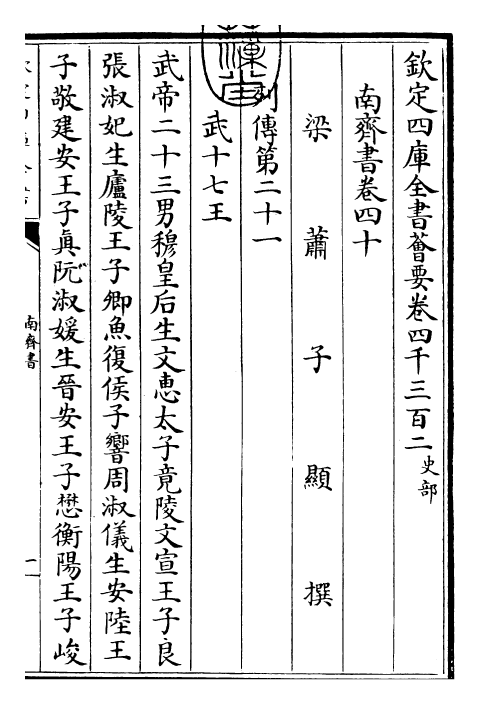 欽定四庫全書薈要卷四千三百二 史部
南齊書卷四十
梁 蕭 子 顯 撰
列傳第二十一
武十七王
武帝二十三男穆皇后生文惠太子竟陵文宣王子良
張淑妃生廬陵王子卿魚復侯子響周淑儀生安陸王
子敬建安王子真阮淑媛生晉安王子懋衡陽王子峻
南齊書